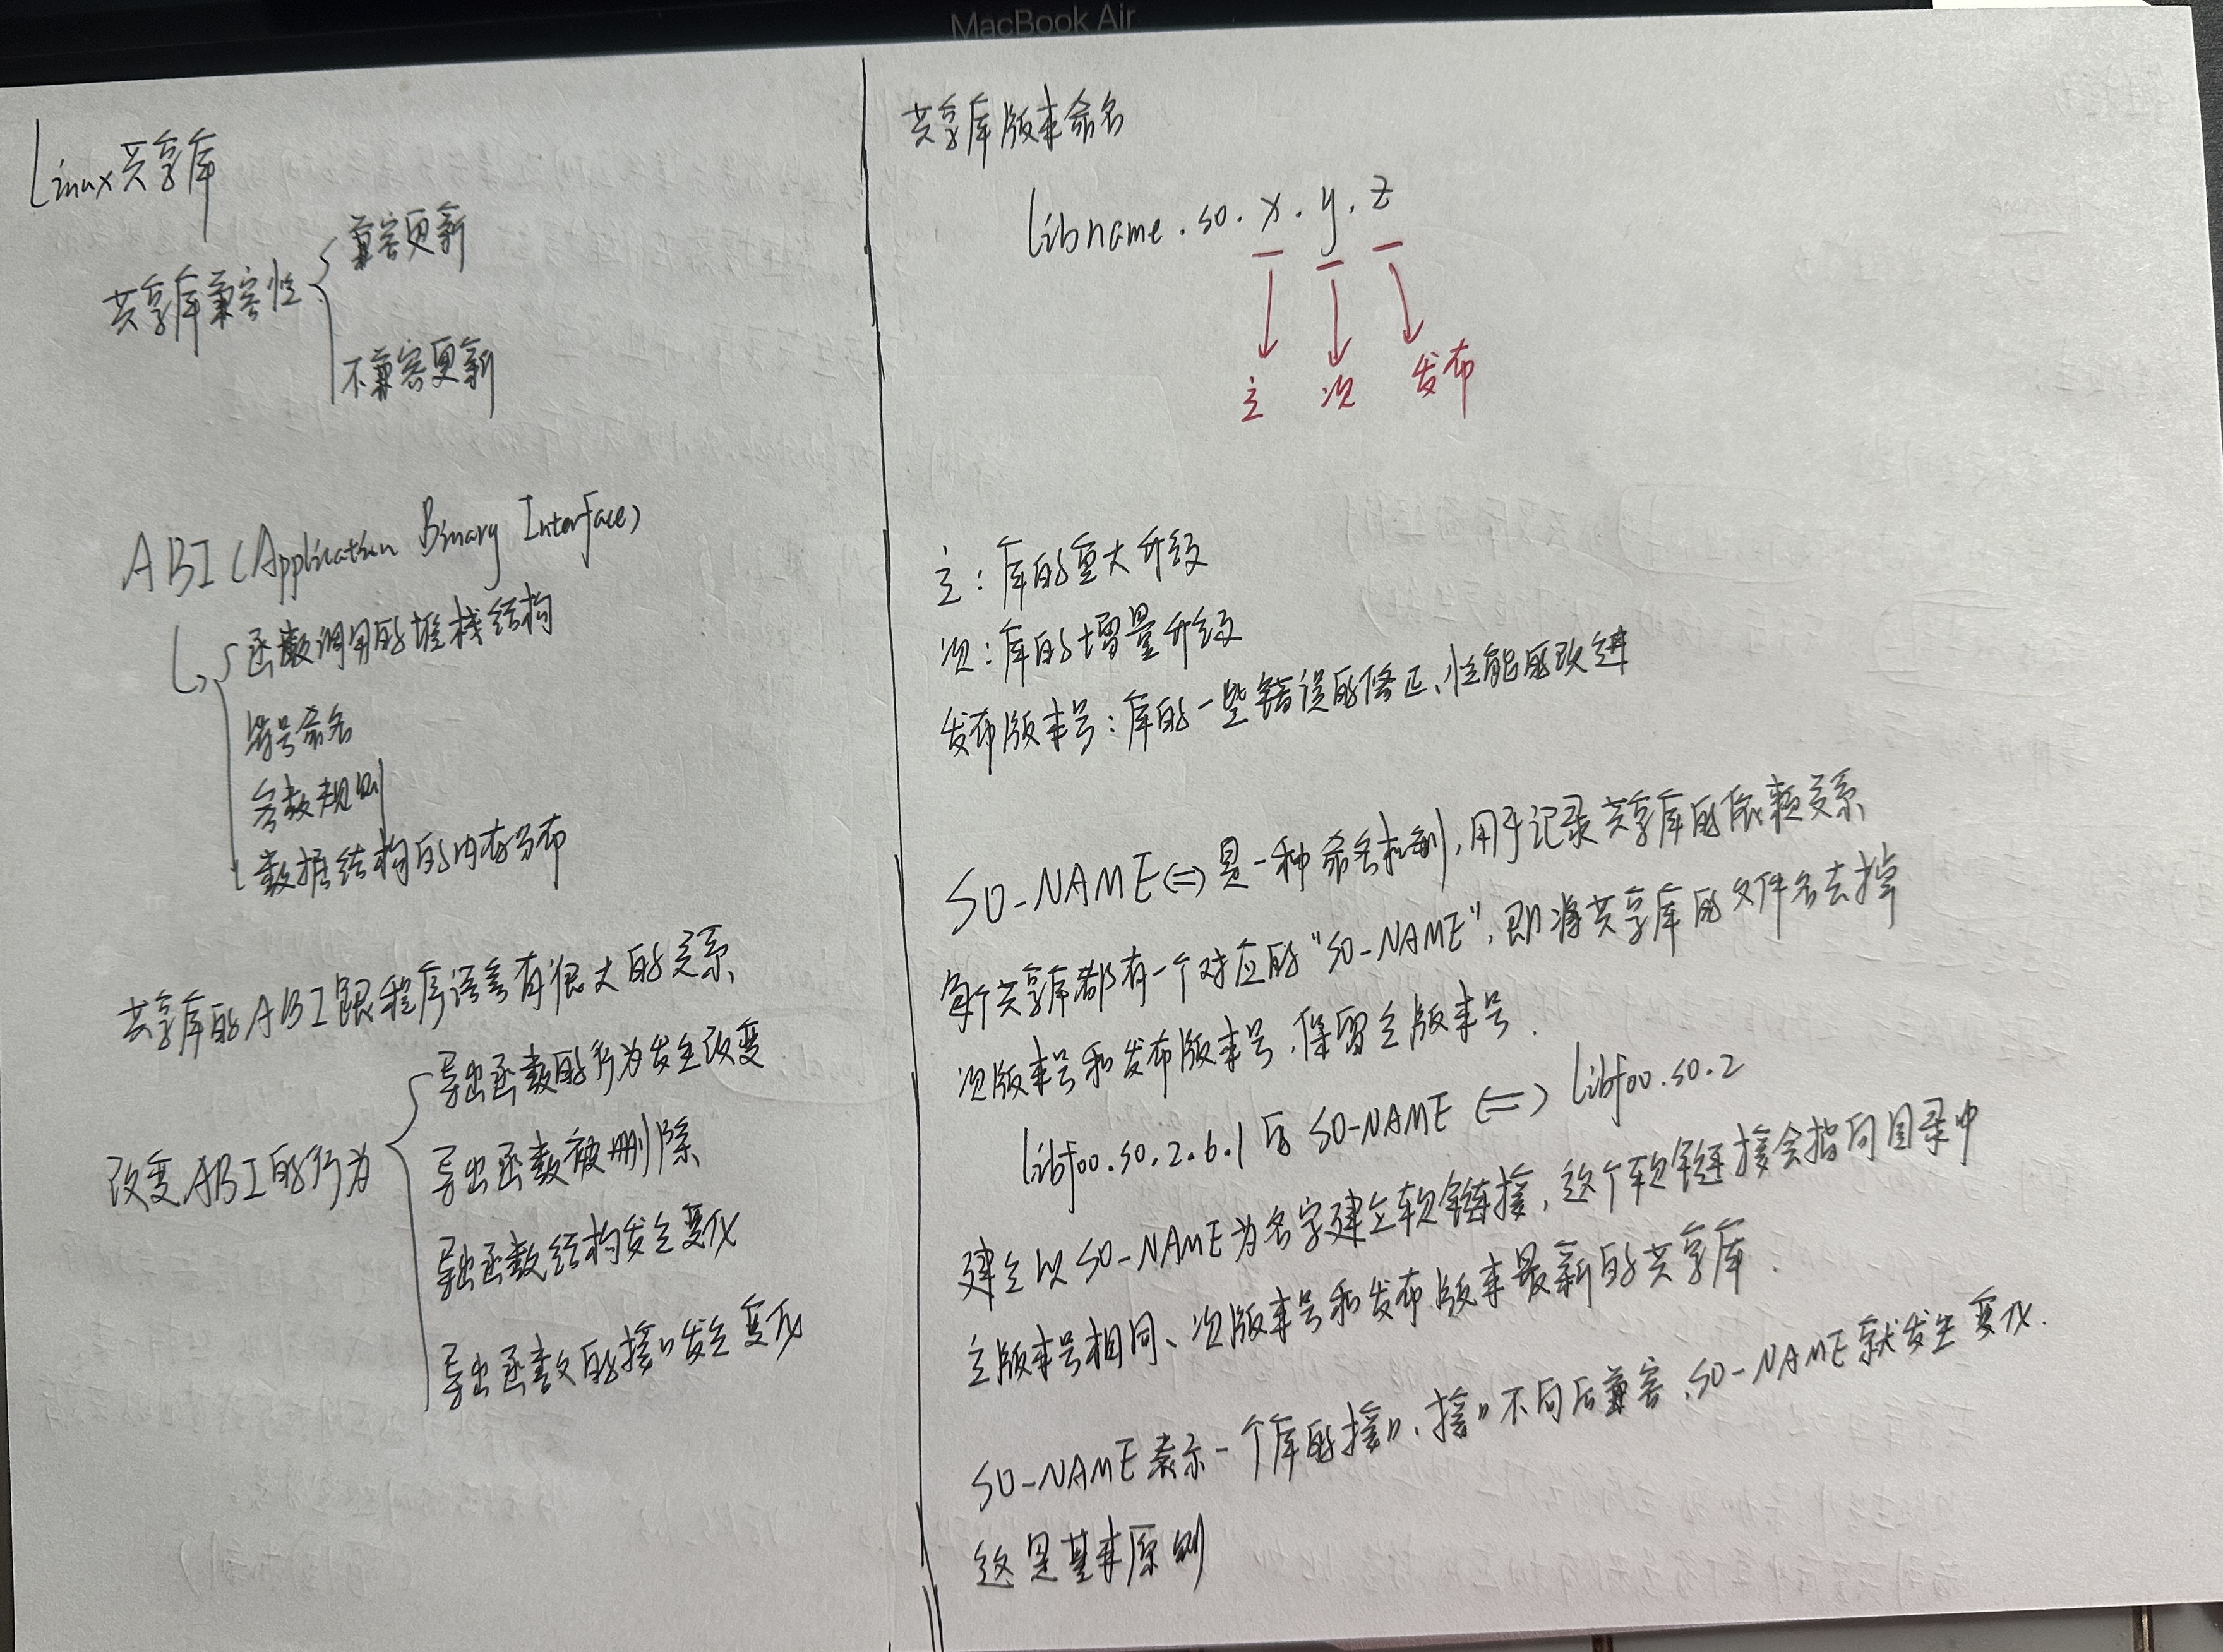 MacBook Air
Linux共享库
共享库兼容性
兼容更新
不兼容更新
ABI (Application Binary Interface)
函数调用的堆栈结构
符号命名
参数规则
数据结构的内存分布
共享库的ABI跟程序语言有很大的关系
改变ABI的行为
导出函数的行为发生改变
导出函数被删除
导出函数结构发生变化
导出函数的接口发生变化
共享库版本命名
libname.so.x.y.z
主 次 发布
主：库的重大升级
次：库的增量升级
发布版本号：库的一些错误的修正、性能的改进
SO-NAME<=>是一种命名机制，用于记录共享库的依赖关系
每个共享库都有一个对应的"SO-NAME"，即将共享库的文件名去掉
次版本号和发布版本号，保留主版本号.
libfoo.so.2.6.1的SO-NAME <=> libfoo.so.2
建立以SO-NAME为名字建立软链接，这个软链接会指向目录中
主版本号相同、次版本号和发布版本最新的共享库.
SO-NAME表示一个库的接口，接口不向后兼容，SO-NAME就发生变化.
这是基本原则